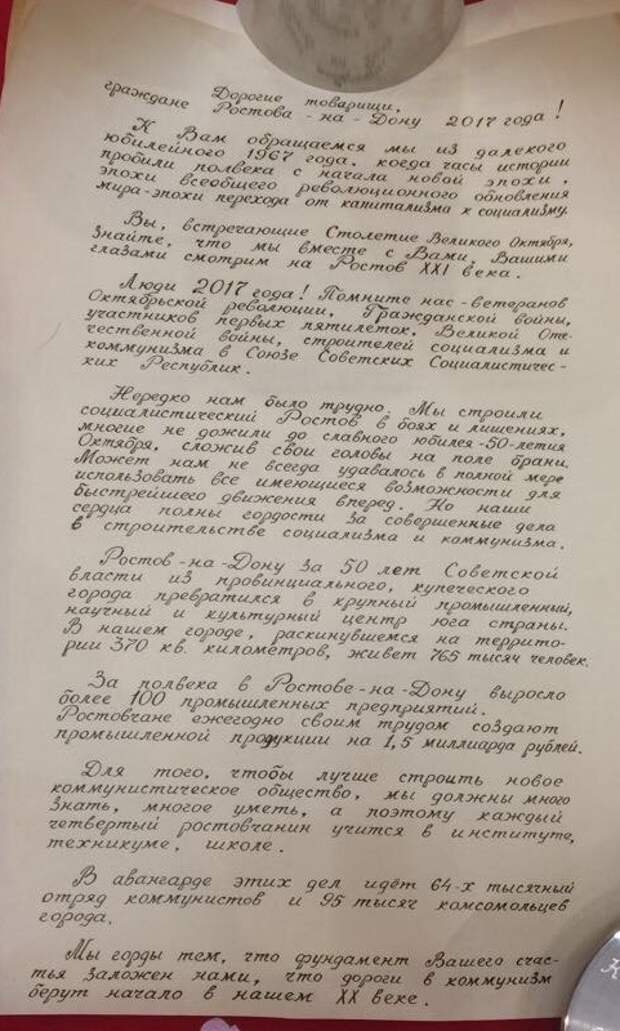 Дорогие товарищи,
граждане Ростова-на-Дону 2017 года!
К Вам обращаемся мы из далекого
юбилейного 1967 года, когда часы истории
пробили полвека с начала новой эпохи,
эпохи всеобщего революционного обновления
мира-эпохи перехода от капитализма к социализму.
Вы, встречающие Столетие Великого Октября,
знайте, что мы вместе с Вами, Вашими
глазами смотрим на Ростов XXI века.
Люди 2017 года! Помните нас-ветеранов
Октябрьской революции, Гражданской войны,
участников первых пятилеток, Великой Оте-
чественной войны, строителей социализма и
коммунизма в Союзе Советских Социалистичес-
ких Республик.
Нередко нам было трудно. Мы строили
социалистический Ростов в боях и лишениях,
многие не дожили до славного юбилея-50-летия
Октября, сложив свои головы на поле брани.
Может нам не всегда удавалось в полной мере
использовать все имеющиеся возможности для
быстрейшего движения вперед. Но наши
сердца полны гордости за совершенные дела
в строительстве социализма и коммунизма.
Ростов-на-Дону за 50 лет Советской
власти из провинциального, купеческого
города превратился в крупный промышленный,
научный и культурный центр юга страны.
В нашем городе, раскинувшемся на террито-
рии 370 кв. километров, живет 765 тысяч человек.
За полвека в Ростове-на-Дону выросло
более 100 промышленных предприятий.
Ростовчане ежегодно своим трудом создают
промышленной продукции на 1,5 миллиарда рублей.
Для того, чтобы лучше строить новое
коммунистическое общество, мы должны много
знать, многое уметь, а поэтому каждый
четвертый ростовчанин учится в институте,
техникуме, школе.
В авангарде этих дел идёт 64-х тысячный
отряд коммунистов и 95 тысяч комсомольцев
города.
Мы горды тем, что фундамент Вашего счас-
тья заложен нами, что дороги в коммунизм
берут начало в нашем XX веке.